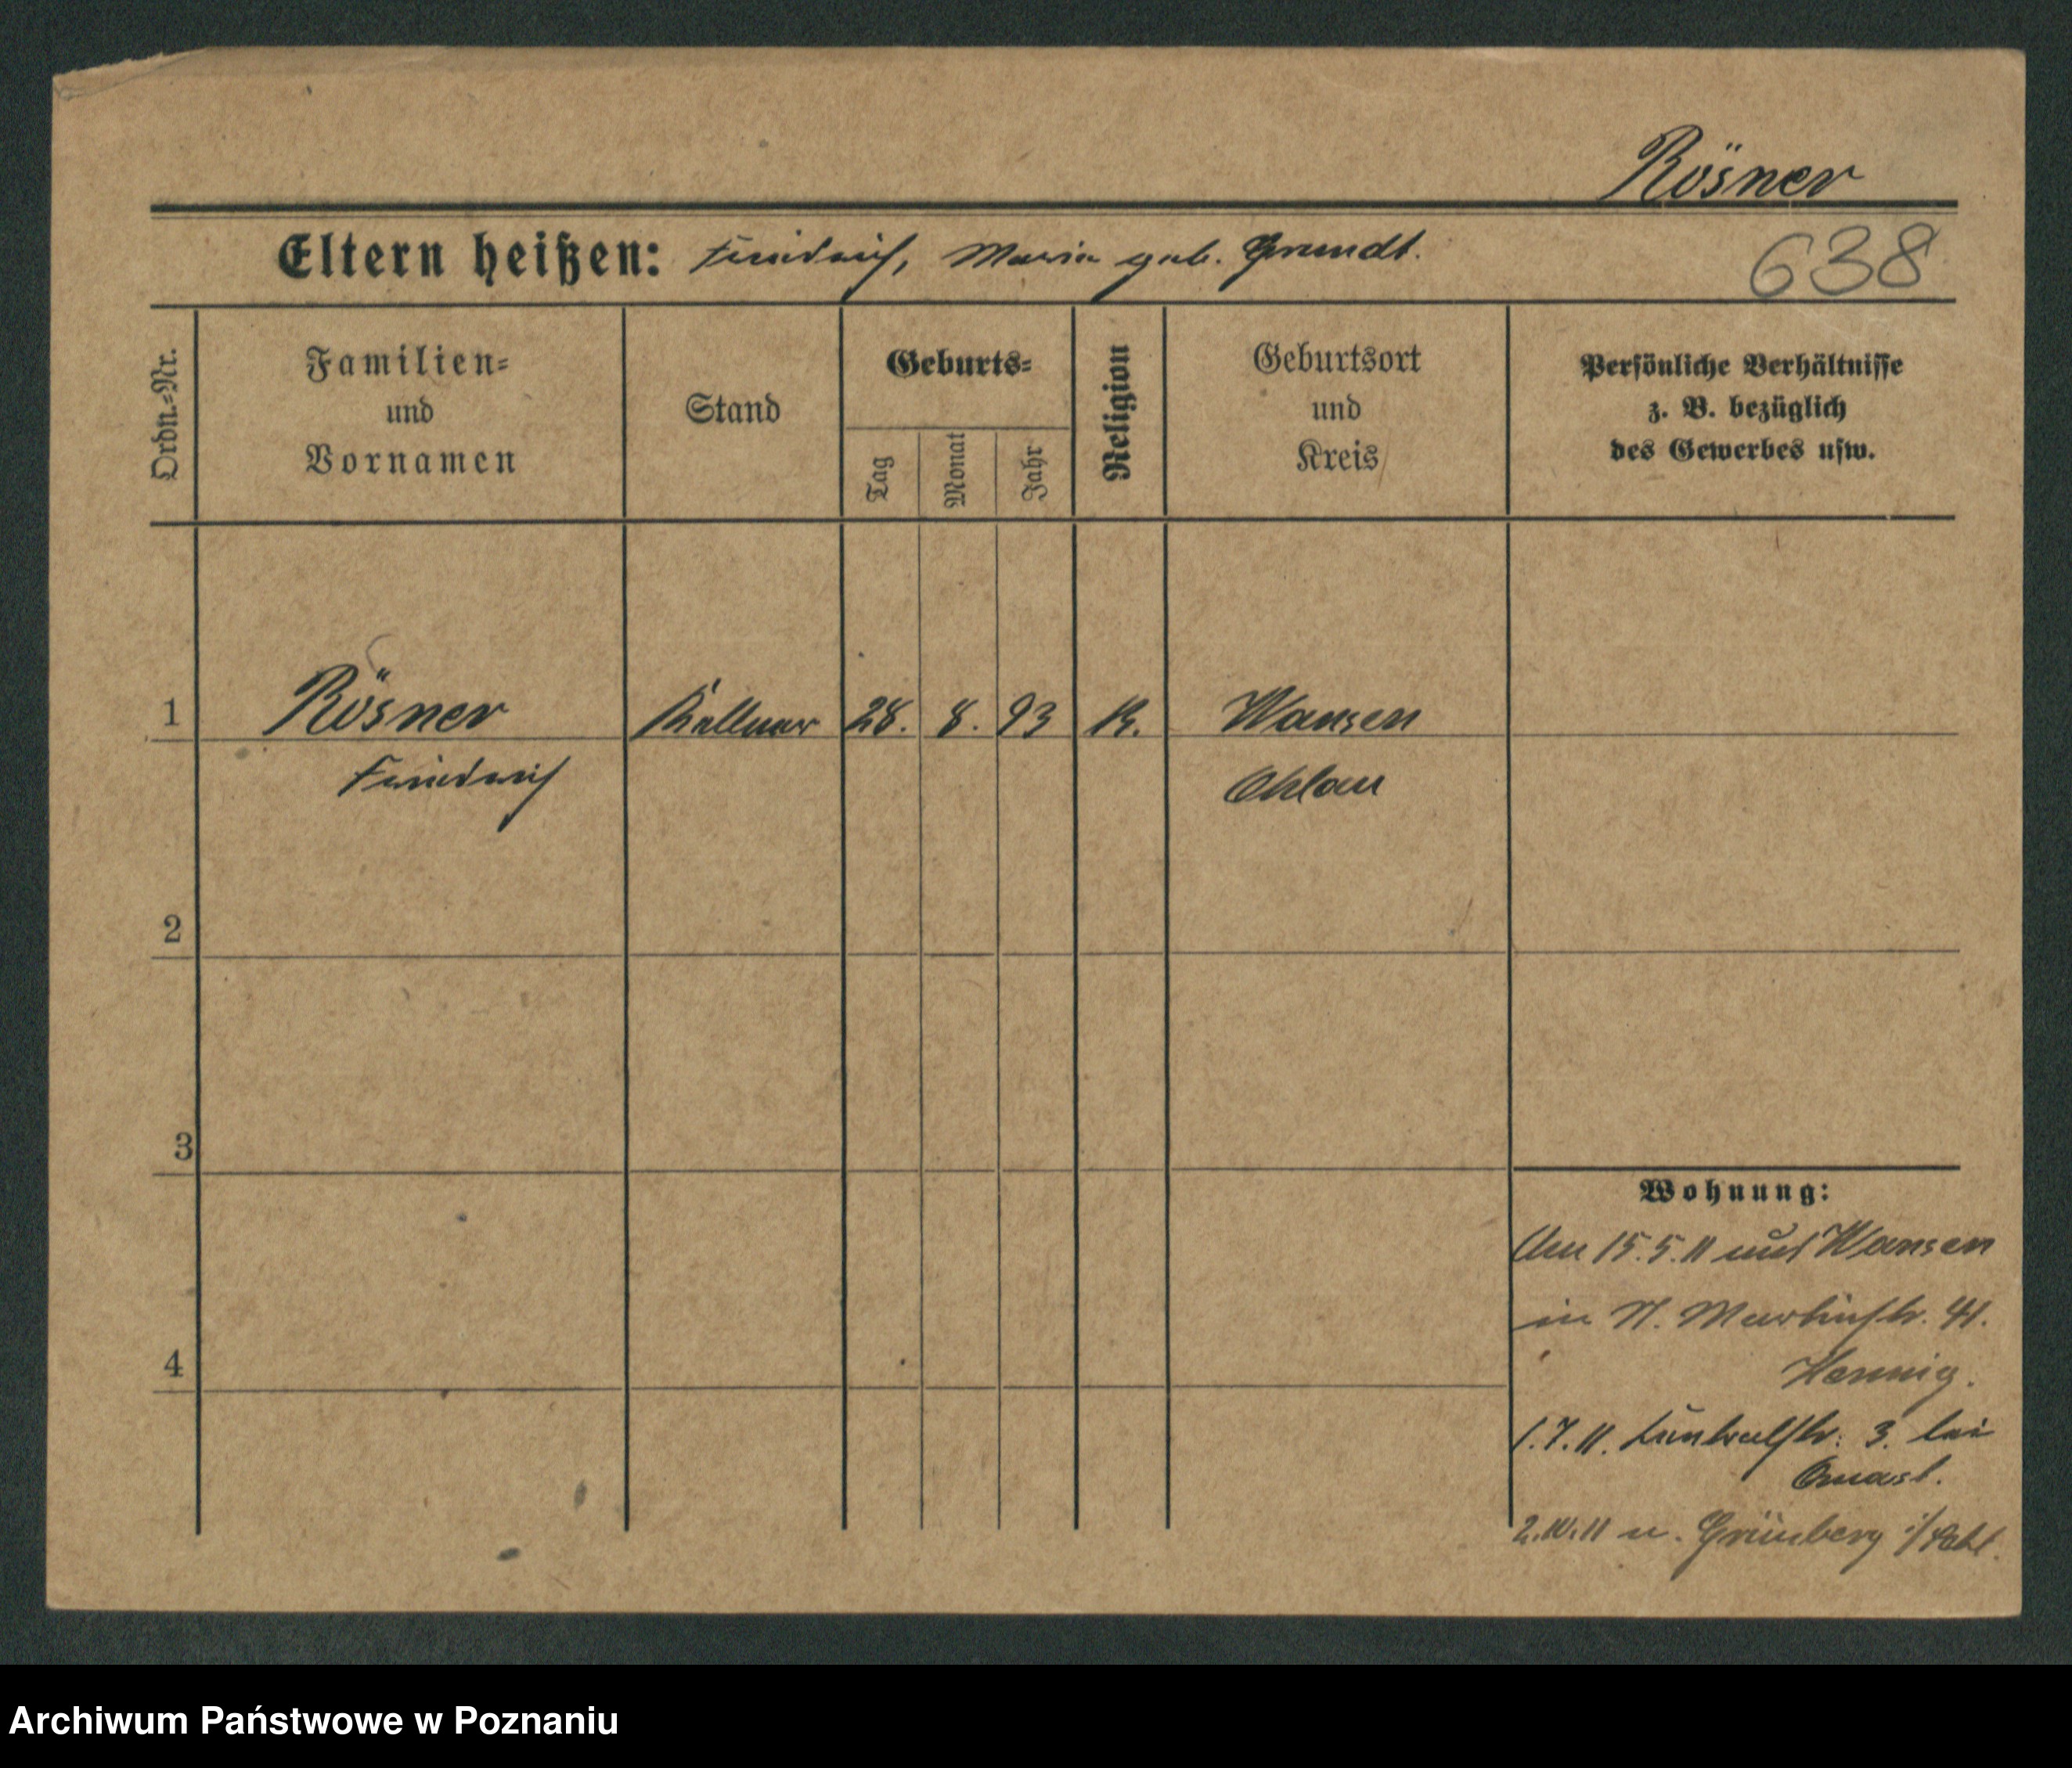 Rösner
Eltern heißen: Friedrich, Maria geb. Grundt.
638
Ordn.=Nr.
Familien=
und
Vornamen
Stand
Geburts=
Tag
Monat
Jahr
Religion
Geburtsort
und
Kreis
Persönliche Verhältnisse
z. B. bezüglich
des Gewerbes usw.
1 Rösner Kellner 28. 8. 93 K. Wansen
Friedrich Ohlau
2
3
4
Wohnung:
Am 15.5.11 aus Wansen
in N. Martinstr. 41.
Hennig.
1.7.11. 3. bei
2.10.11 n. Grünberg i/Schl.